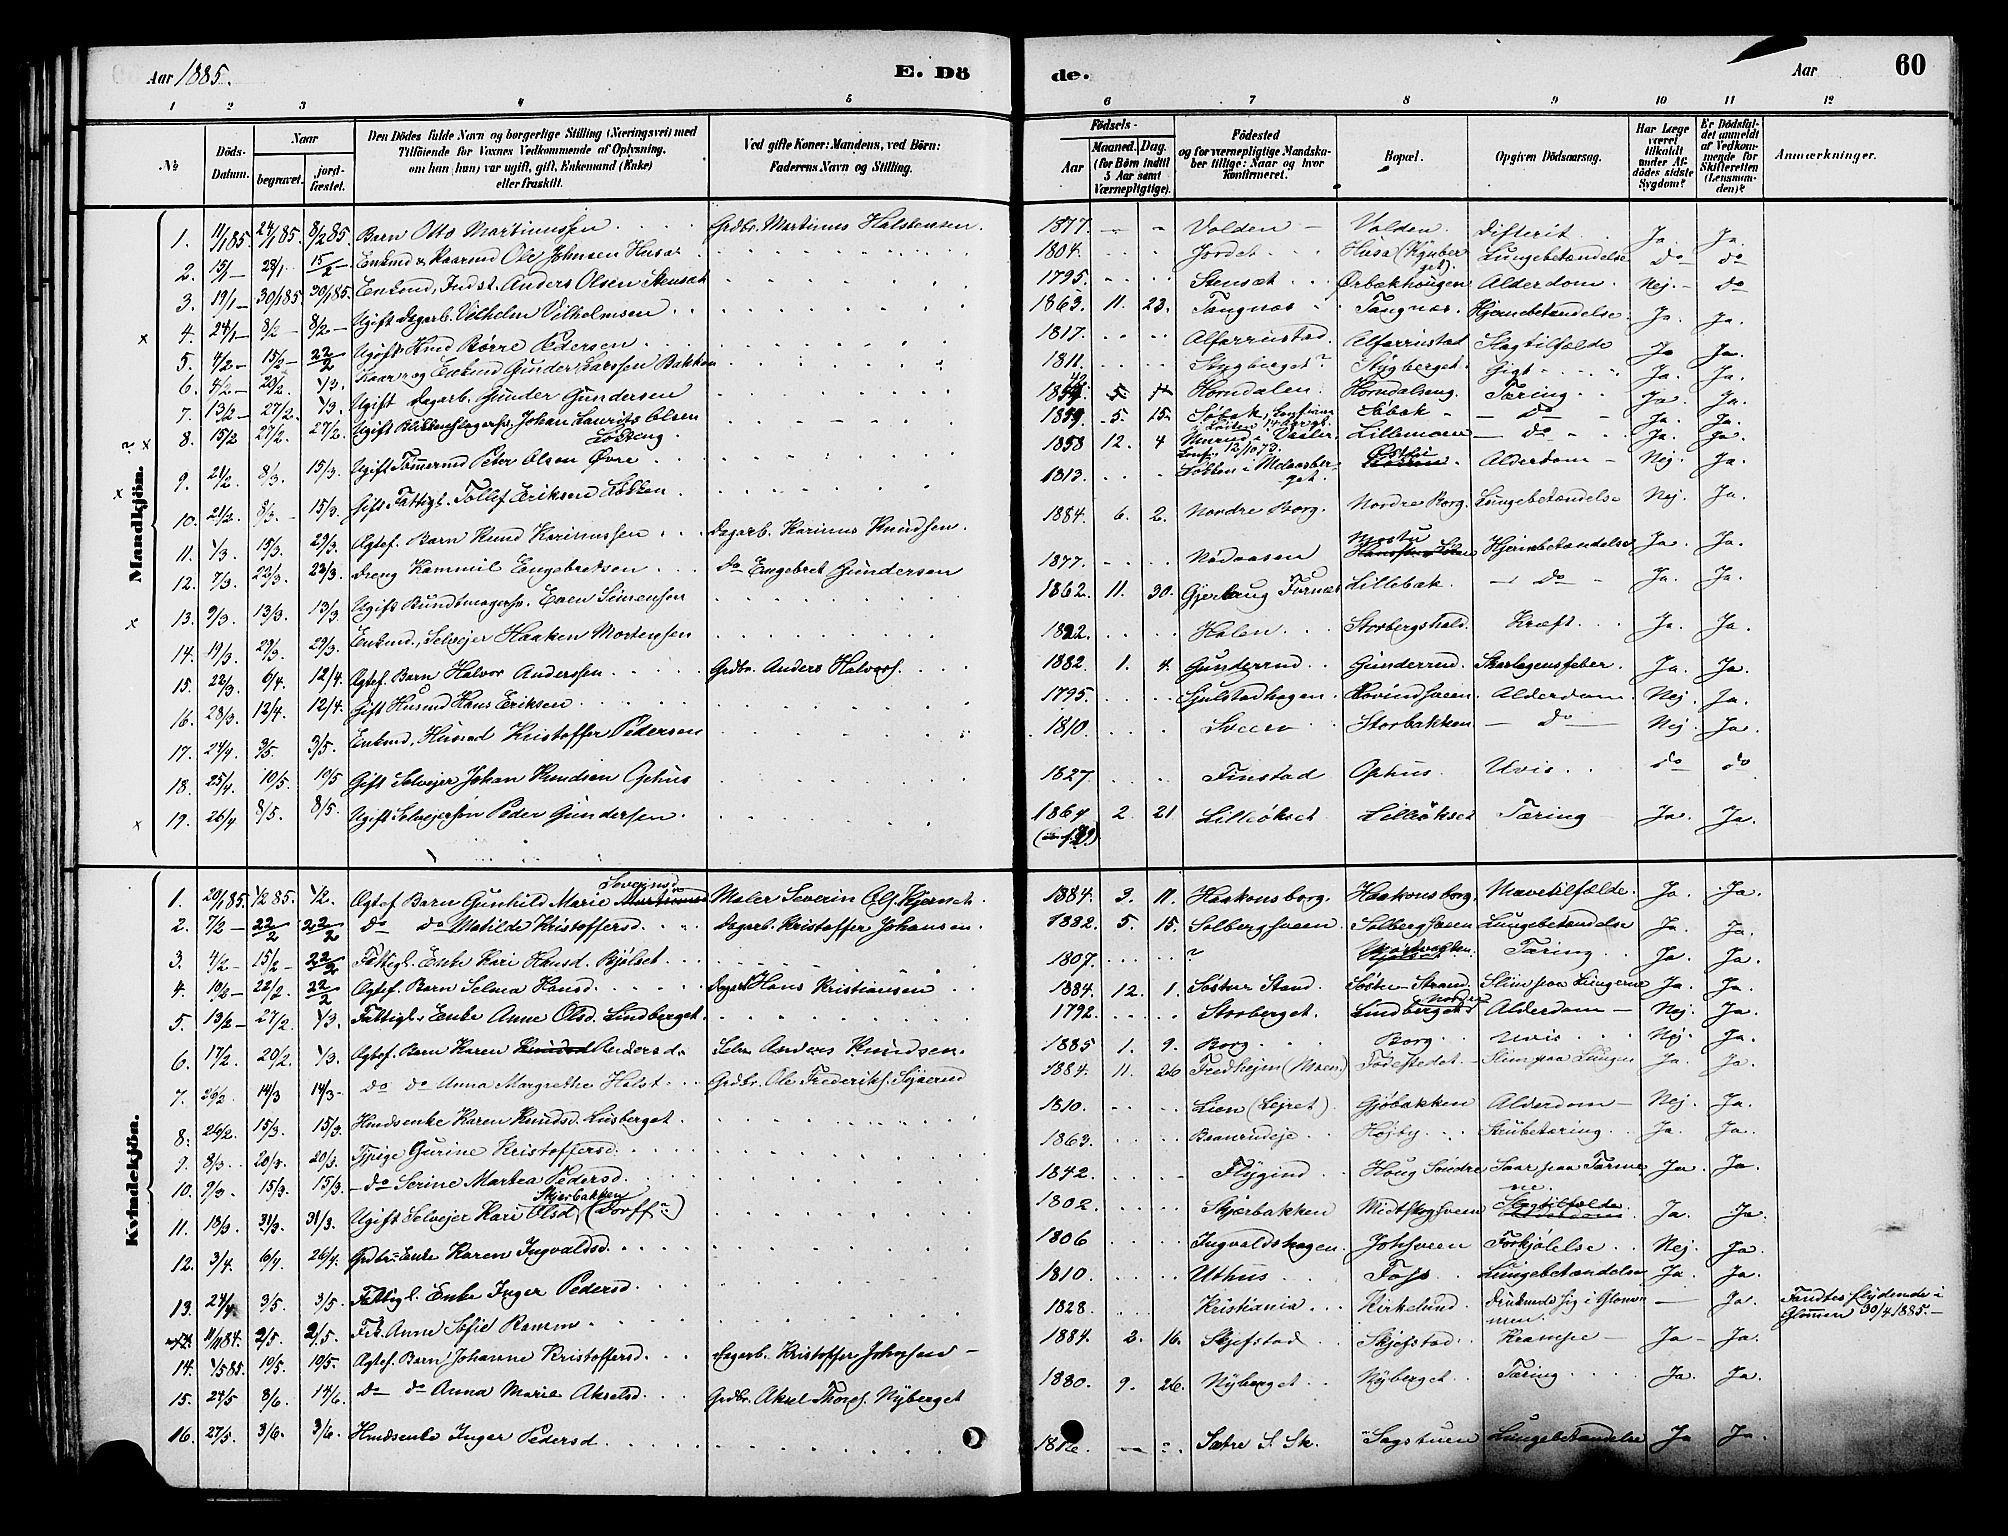 Aar 1885.
E. Dö
de.
Aar
60
1 2 3 4 5 6 7 8 9 10 11 12
№
Döds-Datum.
Naar
begravet.
jordfæstet.
Den Dödes fulde Navn og borgerlige Stilling (Næringsvei) med
Tilföiende for Voxnes Vedkommende af Oplysning,
om han (hun) var ugift, gift, Enkemand (Enke)
eller fraskilt.
Ved gifte Koner: Mandens, ved Börn:
Faderens Navn og Stilling.
Födsels-
Aar
Maaned. Dag.
(for Börn indtil
5 Aar samt
Værnepligtige).
Födested
og for værnepligtige Mandskaber tillige: Naar og hvor
konfirmeret.
Bopæl.
Opgiven Dödsaarsag.
Har Læge været tilkaldt under Afdödes sidste Sygdom?
Er Dödsfaldet anmeldt af Vedkommende for Skifteretten (Lensmanden)?
Anmærkninger.
Mandkjön.
1. 11/1 85 24/1 85. 8/2 85. Barn Otto Martinussen Grdbr. Martinus Halstensen. 1877. Volden Volden. Difterit Ja Ja.
2. 15/1 28/1 15/2 Enkmd & Kaarmd Ole Johnsen Husa 1804. Jordet Husa (Kynberget). Lungebetændelse do do
3. 19/1 30/1 85 30/1 85. Enkmd, Indst. Anders Olsen Stensæt 1795. Stensæt Ørbækhougen Alderdom. Nej. do
4. 24/1 8/2 8/2 Ugift Dagarb. Vilhelm Vilhelmsen 1863. 11. 23. Tangnæs Tangnæs. Hjernebetændelse. Ja. Ja.
5. 4/2 15/2 22/2 Ugift Hmd Børre Pedersen 1817. Alfarrustad Alfarrustad Slagtilfælde Ja Ja.
6. 4/2 20/2. 1/3. Kaar og Enkmd Gunder Larssen Bakken 1811. Stygberget? Stygberget. Gigt Ja. Ja.
7. 13/2 27/2. 1/3. Ugift Dagarb. Gunder Gundersen Horndalen. Horndalseng. Tæring Ja. Ja.
8. 15/2 27/2. 27/2. Ugift Blikkenslagersv. Johan Laurits Olsen Løkkeng. 1859. 5. 15. Søbak, Søbak do Ja. Ja.
9. 21/2. 8/3. 15/3. Ugift Tømmermd Peter Olsen Øvre 1858 12. 4 Lillemoen do Ja. Ja.
10. 21/2. 8/3. 15/3. Gift Fattigl. Tollef Eriksen Løkken. 1813. Alderdom Nej. Ja.
11. 1/3. 15/3. 29/3. Ægtef. Barn Knud Karinussen Dagarb. Karinus Knudsen. 1884. 6. 2. Nordre Borg. Nordre Borg. Lungebetændelse Nej. Ja.
12. 7/3. 22/3. 23/3. Dreng Kammil Engebretsen do Engebret Gundersen 1877. Nødaasen Hjernebetændelse Ja. Ja.
13. 9/3. 13/3. 13/3. Ugift Bundtmagersv. Even Simensen 1862. 11. 30. Gjerlaug Fornæs Lillebak. do Ja. Ja.
14. 19/3. 29/3. 29/3. Enkmd, Selvejer Haaken Mortensen 1822. Holen Storbergshald. Kræft Ja. Ja.
15. 22/3. 6/4. 12/4. Ægtef. Barn Halvor Anderssen Grdbr. Anders Halvors. 1882. 1. 4. Gunderrud Gunderrud. Skarlagensfeber Ja. Ja.
16. 28/3. 13/4. 12/4. Gift Husmd Hans Eriksen 1795. Gjulstadhagen. Hovindsveen. Alderdom Nej. Ja.
17. 24/4. 3/5. 3/5. Enkmd, Husmd Kristoffer Pedersen 1810. Sveen Storbakken do Nej. Ja.
18. 25/4. 10/5. 10/5 Gift Selvejer Johan Knudsen Ophus 1827. Finstad Ophus. Uvis do do
19. 26/4 8/5. 8/5. Ugift Selvejersøn Peder Gundersen. 1864 2 21 Lilleökset Lilleökset Tæring Ja. Ja.
Kvindekjön.
1. 20/1 85. 1/2 85. 1/2. Ægtef Barn Gunhild Marie Severinsd. Maler Severin Ols. Kjernet. 1884. 3. 11. Haakonsborg. Haakonsborg. Nævetilfælde. Ja. Ja.
2. 7/2 22/2 22/2 do do Matilde Kristoffersd. Dagarb. Kristoffer Johansen. 1882. 5. 15. Solbergsveen. Solbergsveen Lungebetændelse Ja. Ja.
3. 4/2 15/2 22/2 Fattigl. Enke Kari Hansd. Bjølset 1807. ? Tæring. Ja. Ja.
4. 10/2 22/2. 22/2 Ægtef. Barn Selma Hansd. Dagarb Hans Kristiansen 1884. 12. 1. Søstu Stand. Søstu Strand. Slim paa Lungerne Ja. Ja.
5. 13/2 27/2. 1/3. Fattigl. Enke Anne Olsd. Lindberget. 1792. Storberget. Lindberget Nordre Alderdom Nej. Ja.
6. 17/2. 20/2. 1/3. Ægtef. Barn Karen Knudsd Andersd. Selv. Anders Knudsen. 1885 1. 9. Borg Borg. Uvis Nej. Ja.
7. 26/2 14/3 14/3 do do Anna Margrethe Holst Grdbr. Ole Frederiks. Syverud 1884. 11. 26 Fredheim (Moen) Fødestedet Slim paa Lungen Ja Ja.
8. 26/2. 15/3. 15/3. Hmdsenke Karen Knudsd. Lusberget. 1810. Lien (Lejret). Gjøbakken Alderdom Nej. Ja.
9. 8/3. 20/3. 20/3. Pige Gurine Kristoffersd. 1863. Baanrudeje Højby Strubetæring. Ja. Ja.
10. 9/3. 15/3. 15/3. do Serine Martea Pedersd. 1842. Flygind Houg Søndre Saar paa Tarmene. Ja Ja.
11. 18/3. 31/3. 31/3. Ugift Selvejer Kari Olsd. Skjærbakken (Dorff) 1802. Skjærbakken Midtskogsveen Slagtilfælde Ja. Ja.
12. 3/4. 6/4. 26/4. Grdbr. Enke Karen Ingvaldsd. 1806 Ingvaldshagen. Johsveen Forkjølelse Nej. Ja.
13. 24/4. 3/5. 3/5. Fattigl. Enke Inger Pedersd. 1810. Uthus Foss. Lungebetændelse Ja. Ja.
11/11 84. 2/5. 2/5. Frk. Anne Sofie Ramm 1828. Kristiania Kirkelund. Druknede sig i Glommen. Ja. Fandtes flydende i Glommen 30/4 1885.
14. 1/5 85. 10/5. 10/5. Ægtef. Barn Johanne Kristoffersd. Dagarb. Kristoffer Johnsen 1884. 2. 16. Skjefstad Skjefstad. Krampe Ja Ja.
15. 24/5 8/6. 14/6. do do Anna Marie Akselsd. Grdbr. Aksel Thors. Nyberget 1880. 9. 26. Nyberget Nyberget. Tæring Ja. Ja.
16. 27/5. 3/6. 3/6. Hmdsenke Inger Pedersd. Sætre S. Sk. Sagstuen Lungebetændelse Ja Ja.